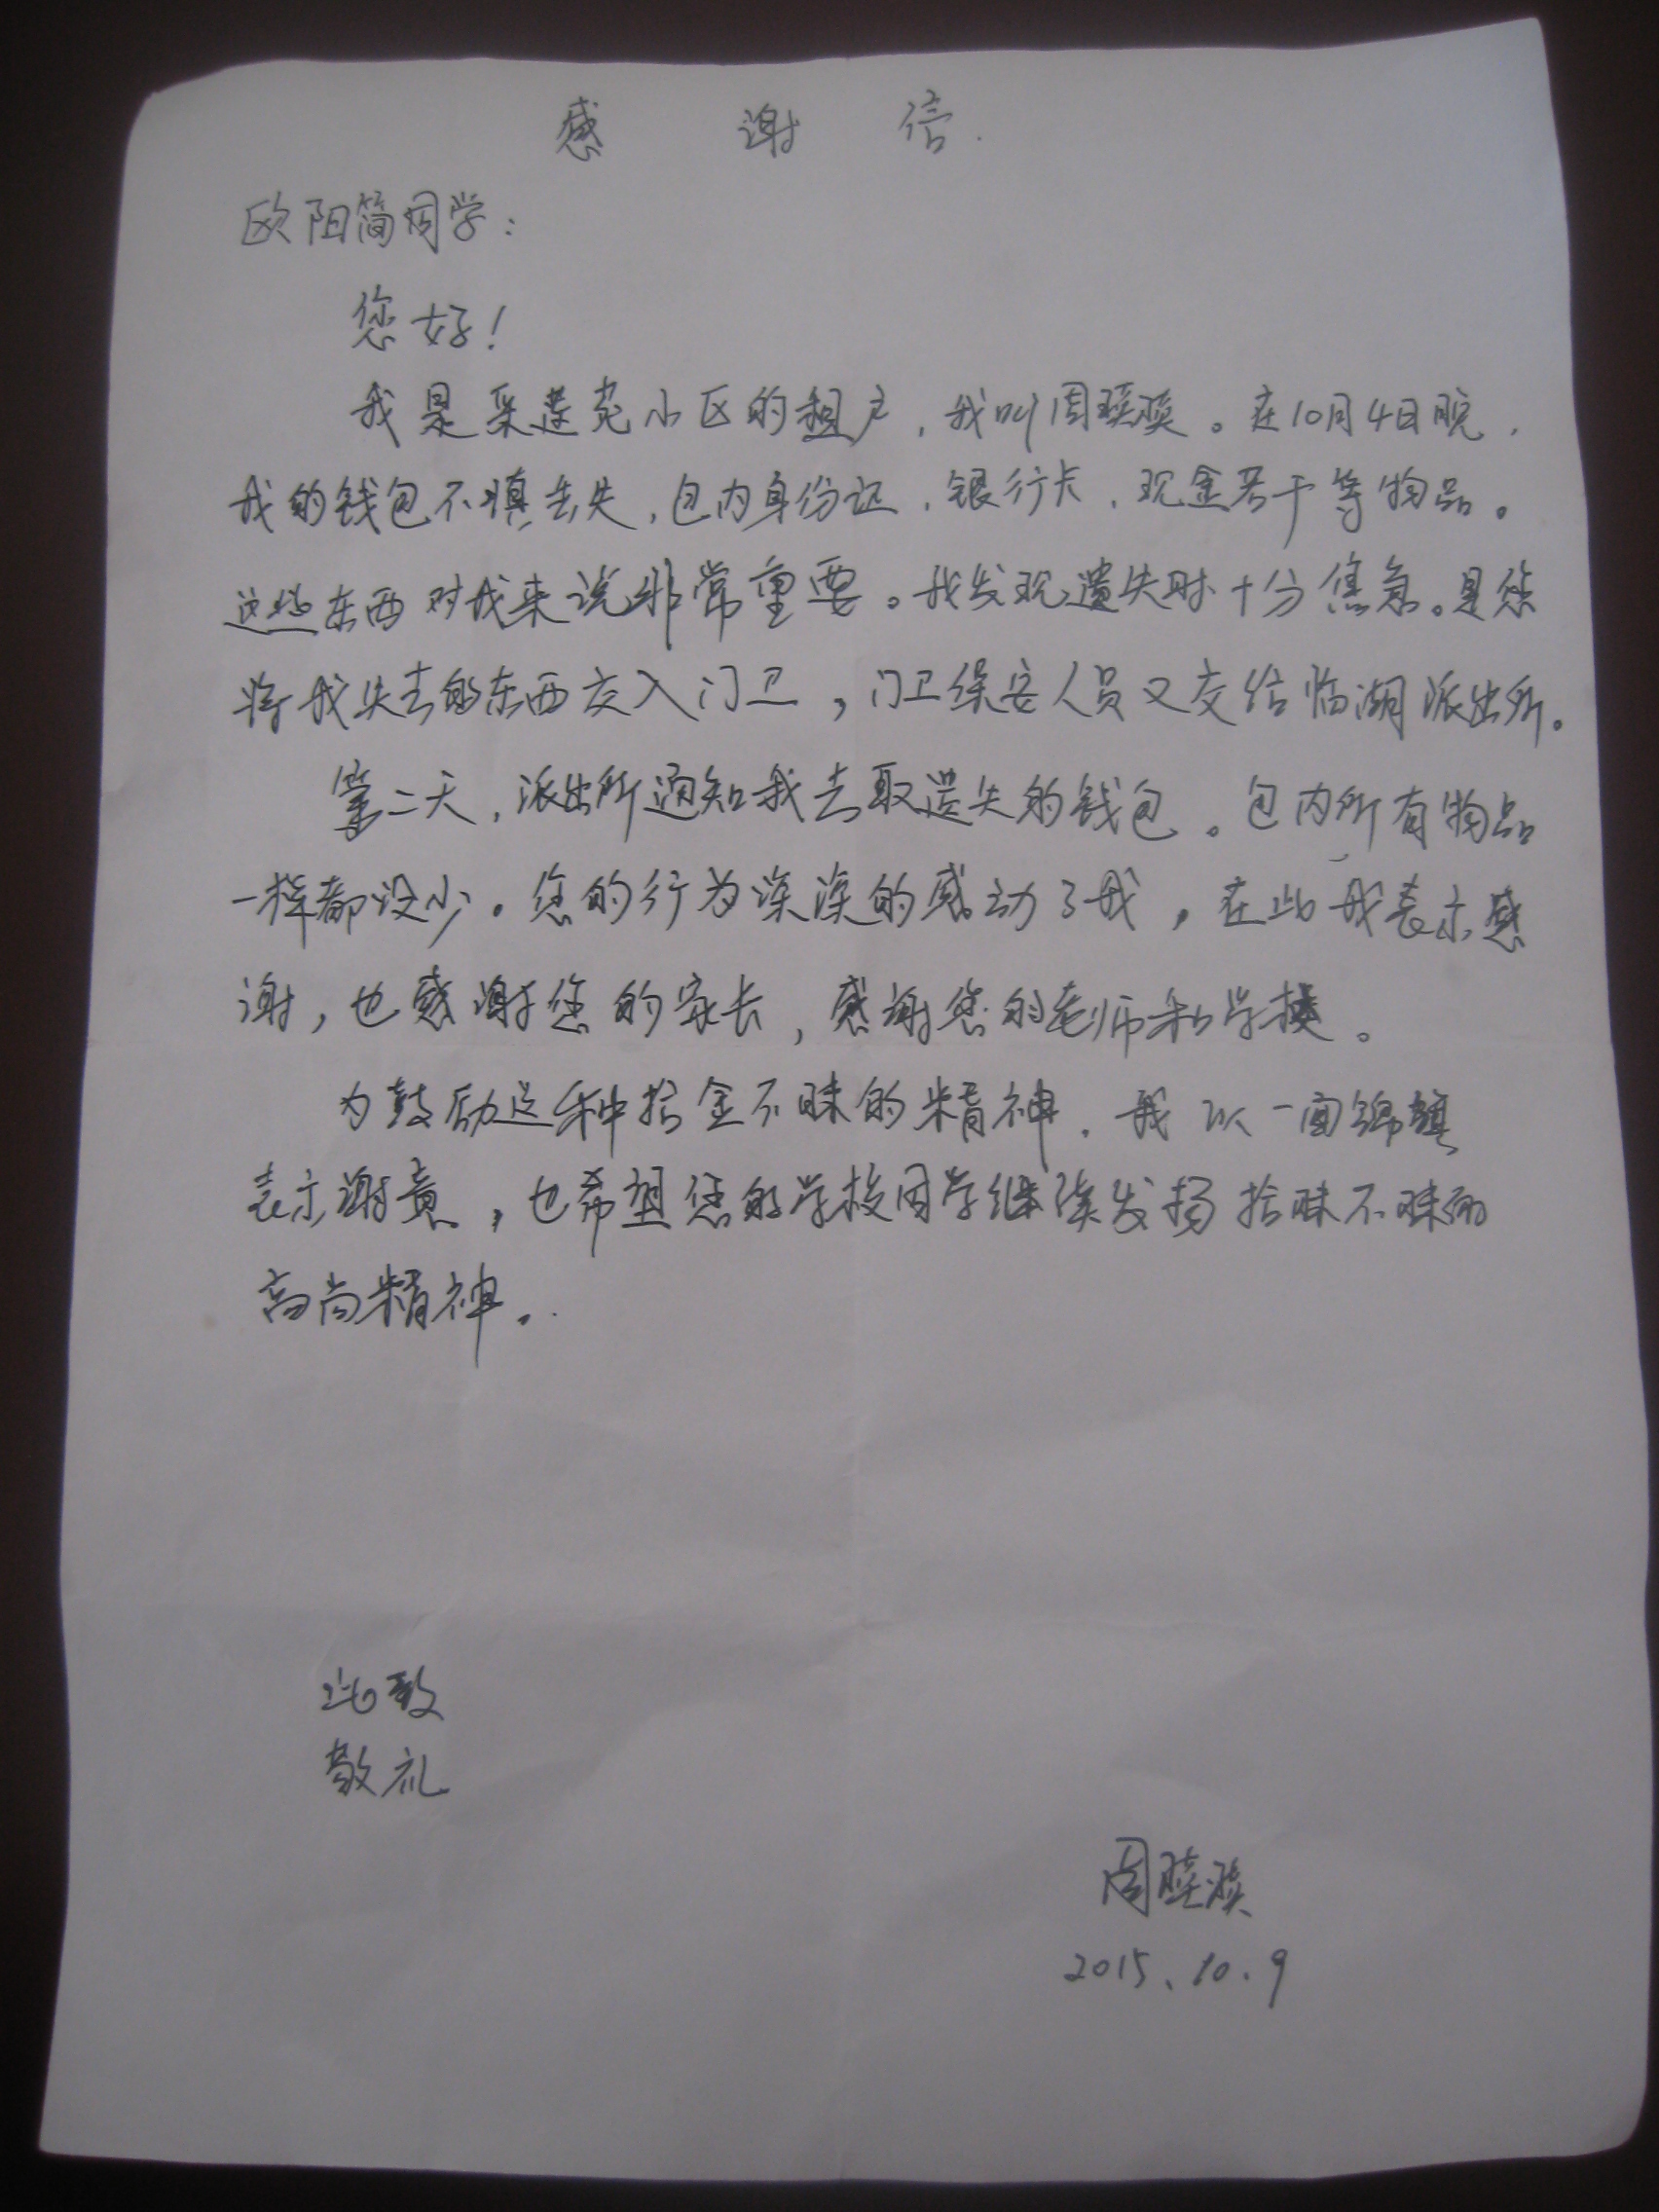 感谢信.
欧阳简同学：
您好！
我是采莲苑小区的租户，我叫周。在10月4日晚，
我的钱包不慎丢失，包内身份证，银行卡，现金若干等物品。
这些东西对我来说非常重要。我发现遗失时十分焦急。是您
将我失去的东西交入门卫，门卫保安人员又交给临湖派出所。
第二天，派出所通知我去取遗失的钱包。包内所有物品
一样都没少。您的行为深深的感动了我，在此我表示感
谢，也感谢您的家长，感谢您的老师和学校。
为鼓励这种拾金不昧的精神，我以一面锦旗
表示谢意，也希望您的学校同学继续发扬拾昧不昧的
高尚精神。
此致
敬礼
周
2015、10、9